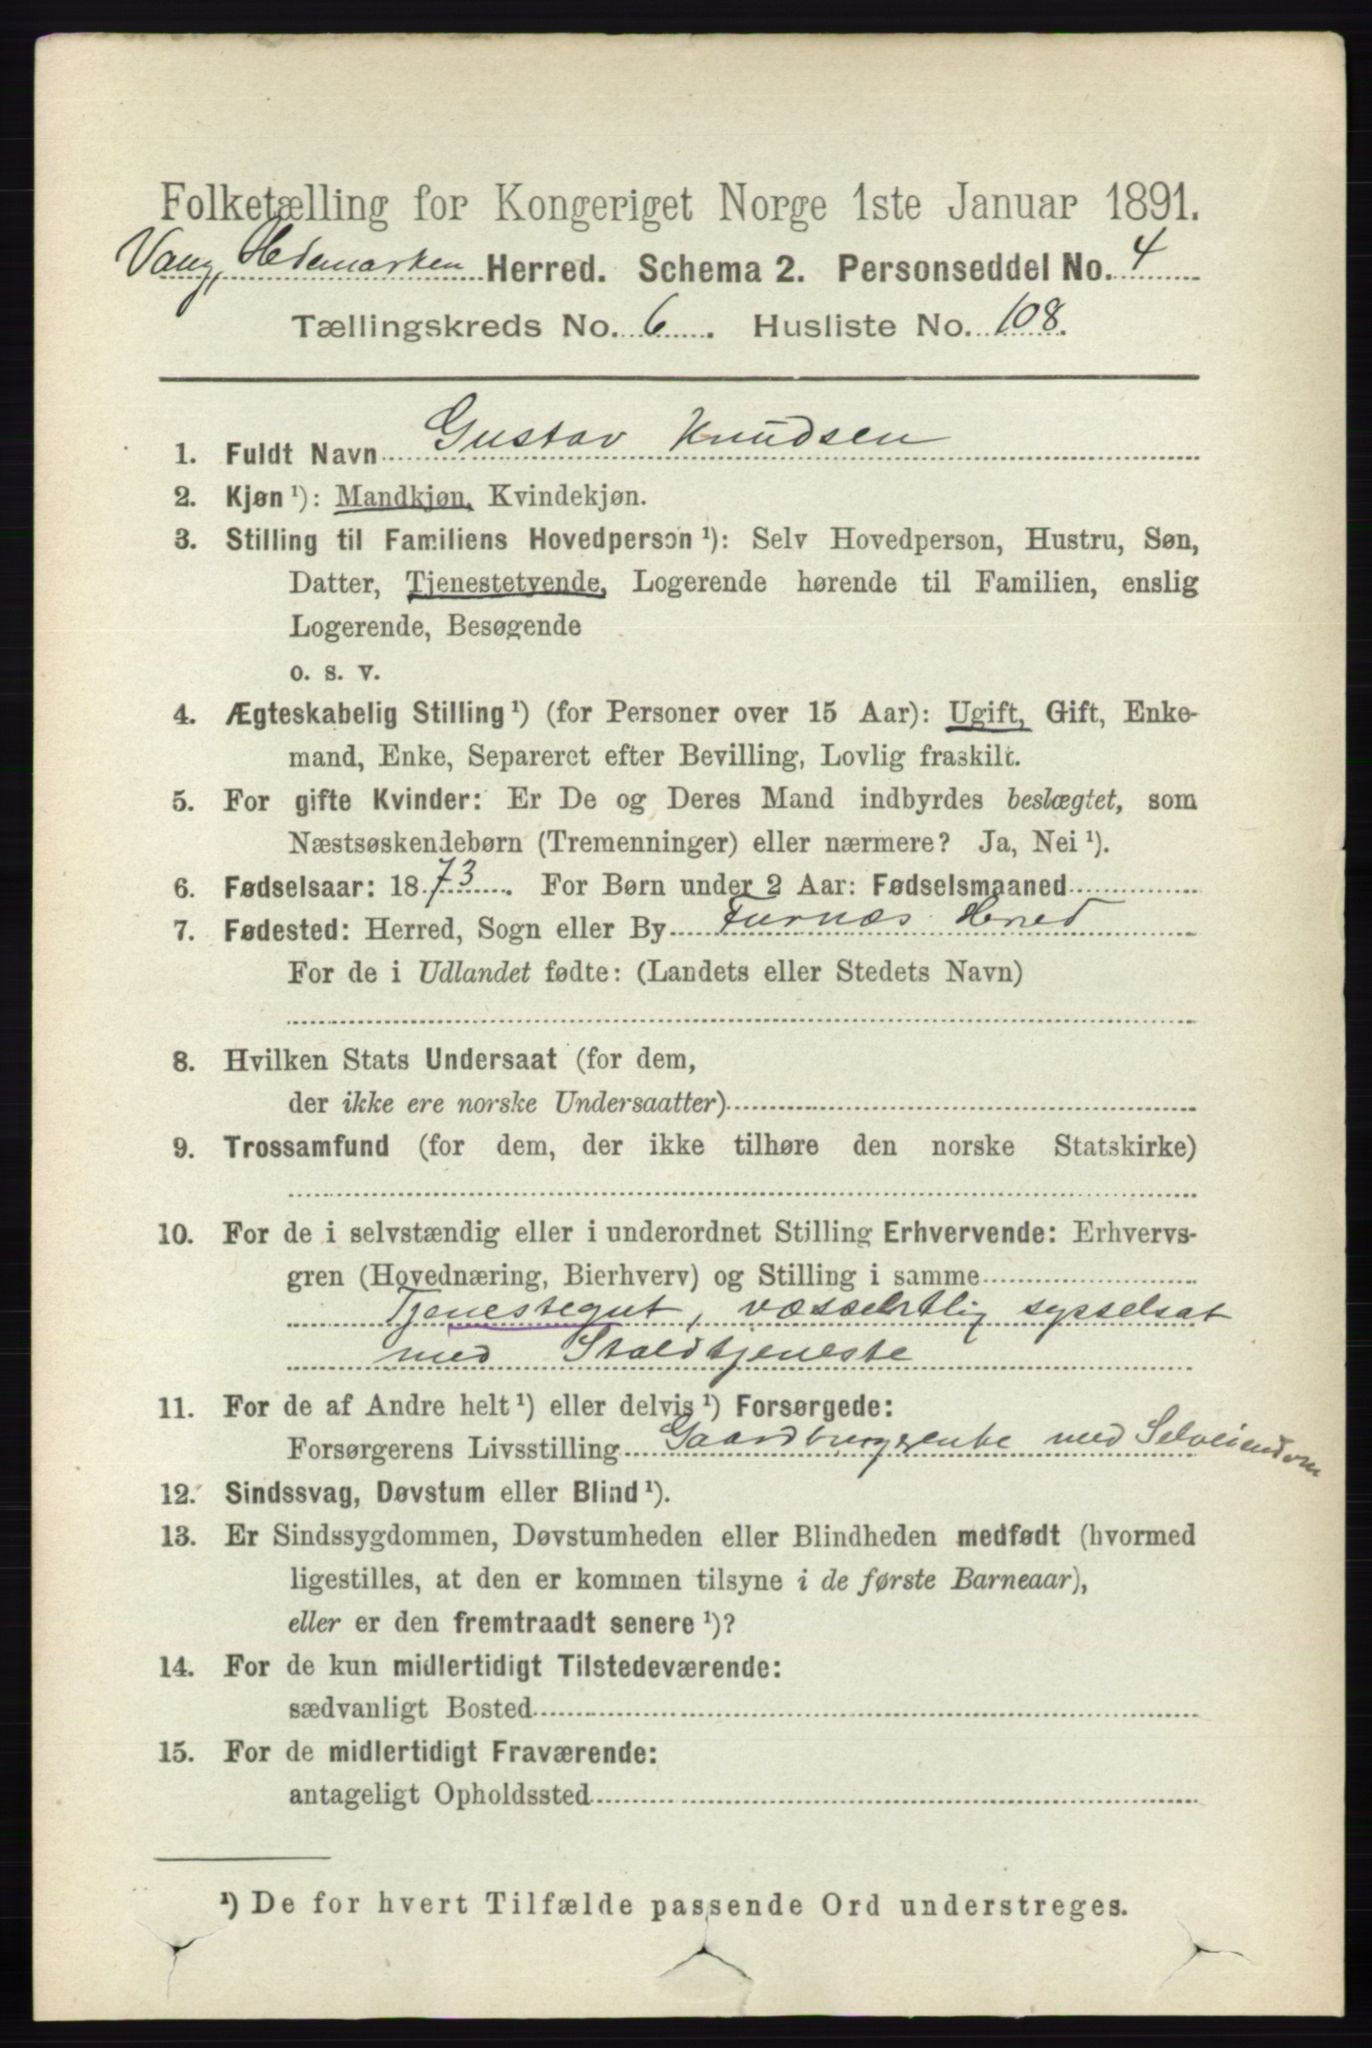 Folketælling for Kongeriget Norge 1ste Januar 1891.
Vang, Hedemarken Herred. Schema 2. Personseddel No. 4
Tællingskreds No. 6. Husliste No. 108.
1. Fuldt Navn Gustav Knudsen
2. Kjøn ¹): Mandkjøn, Kvindekjøn.
3. Stilling til Familiens Hovedperson ¹): Selv Hovedperson, Hustru, Søn,
Datter, Tjenestetyende, Logerende hørende til Familien, enslig
Logerende, Besøgende
o. s. v.
4. Ægteskabelig Stilling ¹) (for Personer over 15 Aar): Ugift, Gift, Enke-
mand, Enke, Separeret efter Bevilling, Lovlig fraskilt.
5. For gifte Kvinder: Er De og Deres Mand indbyrdes beslægtet, som
Næstsøskendebørn (Tremenninger) eller nærmere? Ja, Nei ¹).
6. Fødselsaar: 1873. For Børn under 2 Aar: Fødselsmaaned
7. Fødested: Herred, Sogn eller By Furnæs Herred
For de i Udlandet fødte: (Landets eller Stedets Navn)
8. Hvilken Stats Undersaat (for dem,
der ikke ere norske Undersaatter)
9. Trossamfund (for dem, der ikke tilhøre den norske Statskirke)
10. For de i selvstændig eller i underordnet Stilling Erhvervende: Erhvervs-
gren (Hovednæring, Bierhverv) og Stilling i samme
Tjenestegut, væsentlig sysselsat
med Staldtjeneste
11. For de af Andre helt ¹) eller delvis ¹) Forsørgede:
Forsørgerens Livsstilling Gaardbrugerenke med Selveiendom
12. Sindssvag, Døvstum eller Blind ¹).
13. Er Sindssygdommen, Døvstumheden eller Blindheden medfødt (hvormed
ligestilles, at den er kommen tilsyne i de første Barneaar),
eller er den fremtraadt senere ¹)?
14. For de kun midlertidigt Tilstedeværende:
sædvanligt Bosted
15. For de midlertidigt Fraværende:
antageligt Opholdssted
¹) De for hvert Tilfælde passende Ord understreges.